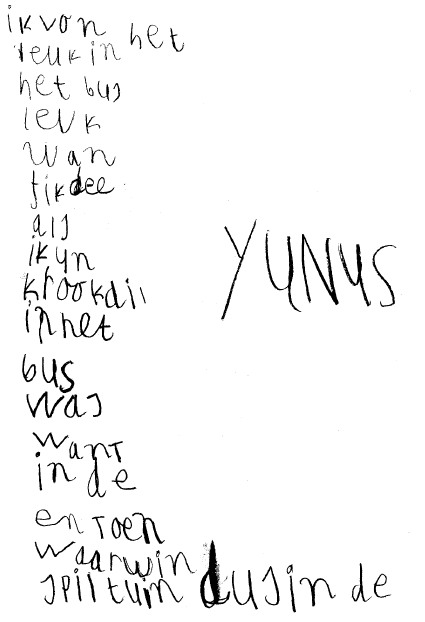 ik von
leuk in het
het bus
leuk
wan
fikdee
als
ik yn
krookdil
in het
YUNUS
bus
was
want
in de
en toen
waarwin
spiltuin dus in de